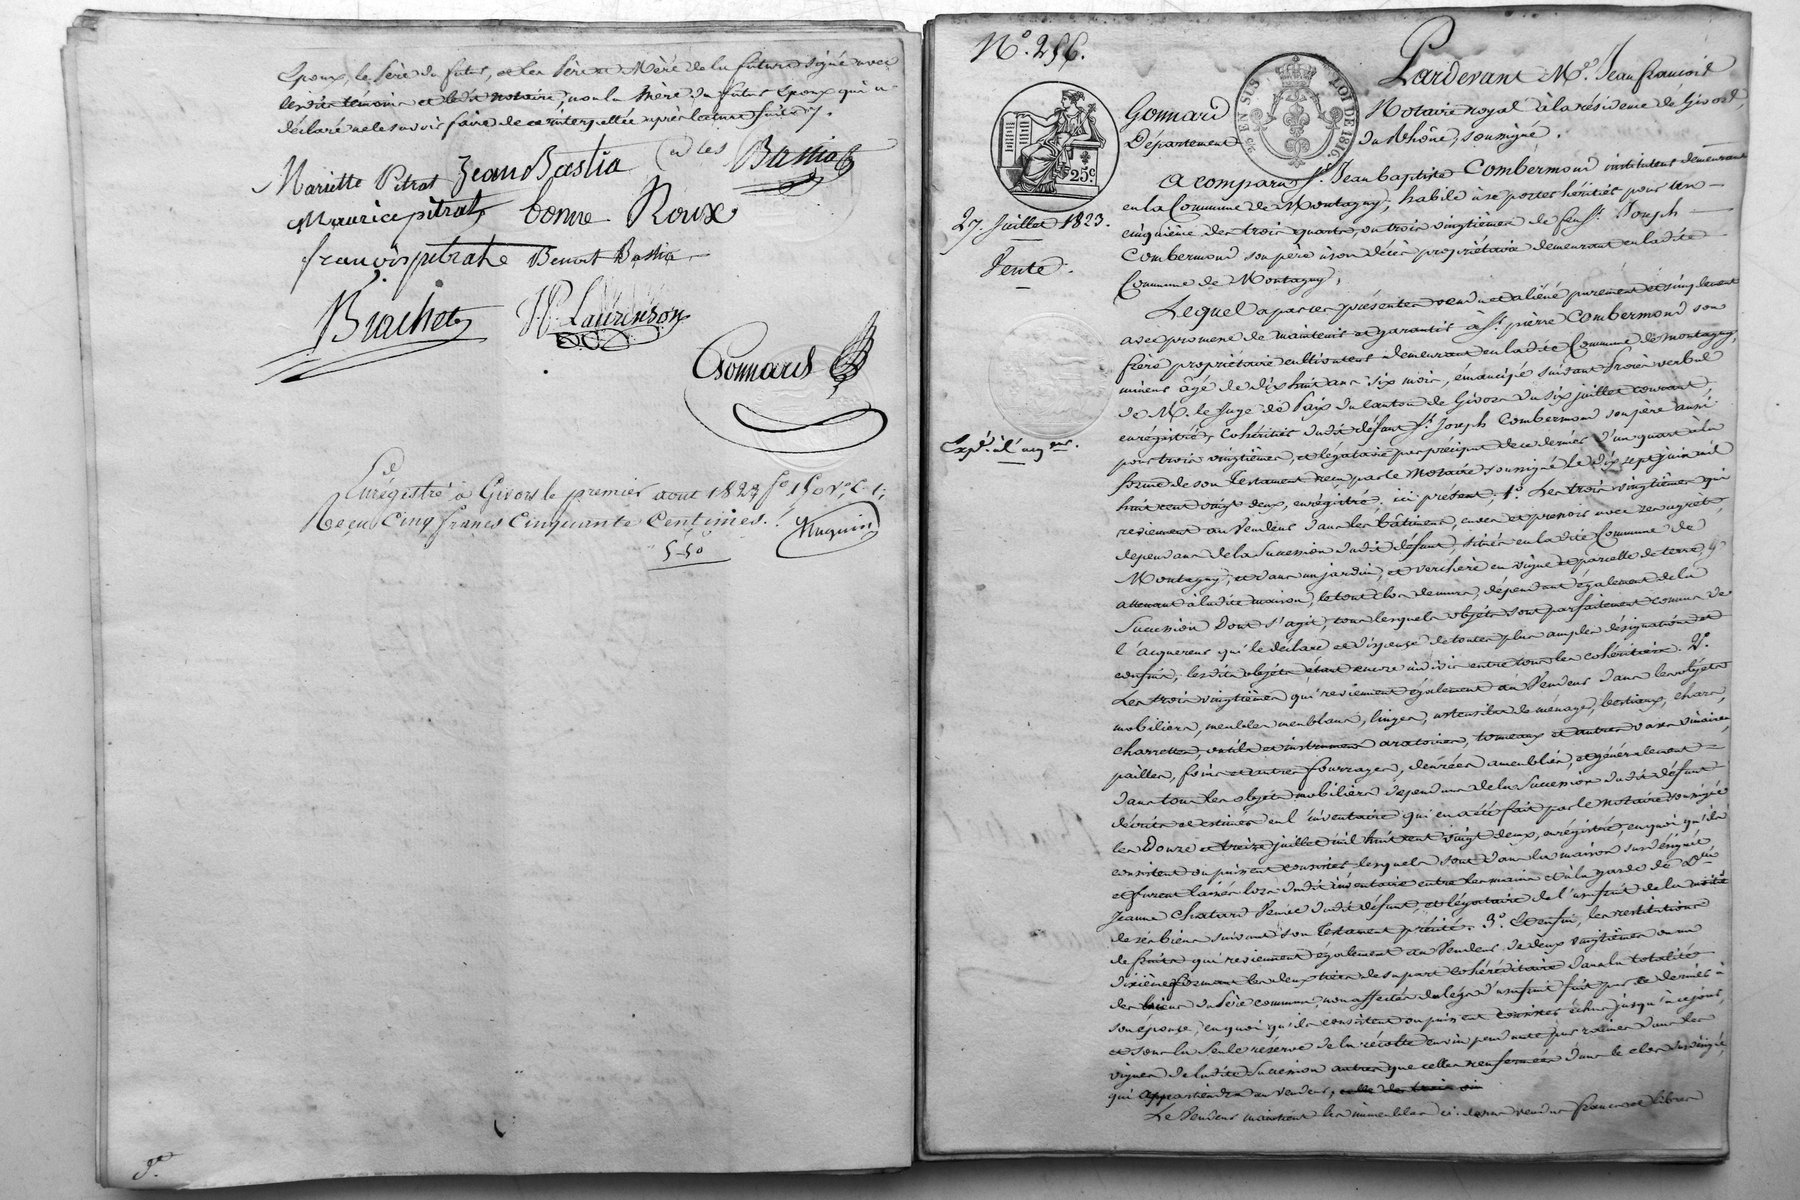 Epoux, le Père du futur, et les Père et Mère de la future signé avec
lesdits témoins et led. notaire, non la Mère du futur Epoux qui a
déclaré ne le savoir faire de ce interpellée après lecture faite.
Mariette Pitrat Jean Bastia Bassia
Maurice pitrat bonne Roux
françois pitrat Benoit Bassia
Brachet H. Laurenson
Gonnard
Enregistré à Givors le premier aout 1823 fo 150 vo C. 1.
Reçu Cinq francs Cinquante Centimes.
5-50
N.o 256.
25c
LOI DE 1816.
27. Juillet 1823.
Vente.
Pardevant Me. Jean francois
Gonnard Notaire royal à la résidence de Givors,
Département du Rhône, soussigné.
A comparu Sr. Jean baptiste Combermond instituteur demeurant
en la Commune de Montagny, habile à se porter héritier pour un
cinquième des trois quarts, ou trois vingtièmes de feu Sr. Joseph
Combermond son père à son décès propriétaire demeurant en ladite
Commune de Montagny;
Lequel a par ces présentes vendu et aliéné purement et simplement
avec promesse de maintenir et garantir à Sr. pierre Combermond son
frère propriétaire cultivateur demeurant en ladite Commune de Montagny,
mineur âgé de dix huit ans six mois, émancipé suivant procès verbal
de M. le Juge de Paix du Canton de Givors du six juillet courant,
enregistré, cohéritier dudit défunt Sr. Joseph Combermond son père aussi
pour trois vingtièmes, et légataire par préciput de ce dernier d'un quart à la
forme de son Testament reçu par le Notaire soussigné le dix sept juin mil
huit cent vingt deux, enregistré, ici présent, 1o. Les trois vingtièmes qui
reviennent au Vendeur dans les bâtiments, cuves et pressoir avec ses agrès,
dépendans de la Succession dudit défunt, situés en ladite Commune de
Montagny, et dans un jardin, et verchère en vigne et parcelle de terre, y
attenant à ladite maison, le tout clos de murs, dépendant également de la
Succession dont s'agit, tous lesquels objets sont parfaitement connus de
l'acquereur qui le déclare et dispense de toutes plus amples désignations et
confins, lesdits objets étant encore indivis entre tous les cohéritiers. 2o.
Les trois vingtièmes qui reviennent également au Vendeur dans les objets
mobiliers, meubles meublans, linges, ustensiles de ménage, bestiaux, chars,
charrettes, outils et instrumens aratoires, tonneaux et autres vases vinaires,
pailles, foins et autres fourrages, denrées ameublies, et généralement
dans tous les objets mobiliers dépendans de la Succession dudit défunt
décrits et estimés en l'inventaire qui en a été fait par le Notaire soussigné
les Douze et treize juillet mil huit cent vingt deux, enregistré, en quoi qu'ils
consistent ou puissent consister lesquels sont dans la maison sus désignée
et furent laissés lors dudit inventaire entre les mains et à la garde de De
Jeanne Chatard Veuve dudit défunt, et légataire de l'usufruit de la moitié
de ses biens suivant son Testament précité. 3o. Et enfin, les restitutions
de fruits qui reviennent également au Vendeur de deux vingtièmes ou un
dixième formant les deux tiers de sa part cohéréditaire dans la totalité
des biens du Père commun, non affectés du legs d'usufruit fait par ce dernier à
son épouse, en quoi qu'ils consistent ou puissent consister échus jusqu'à ce jour,
et sous la seule réserve de la récolte en vin pendante par racines dans les
vignes de ladite Succession autres que celles renfermées dans le clos sus désigné,
qui appartiendra au vendeur,
Le Vendeur maintient les immeubles ci-dessus vendus francs et libres